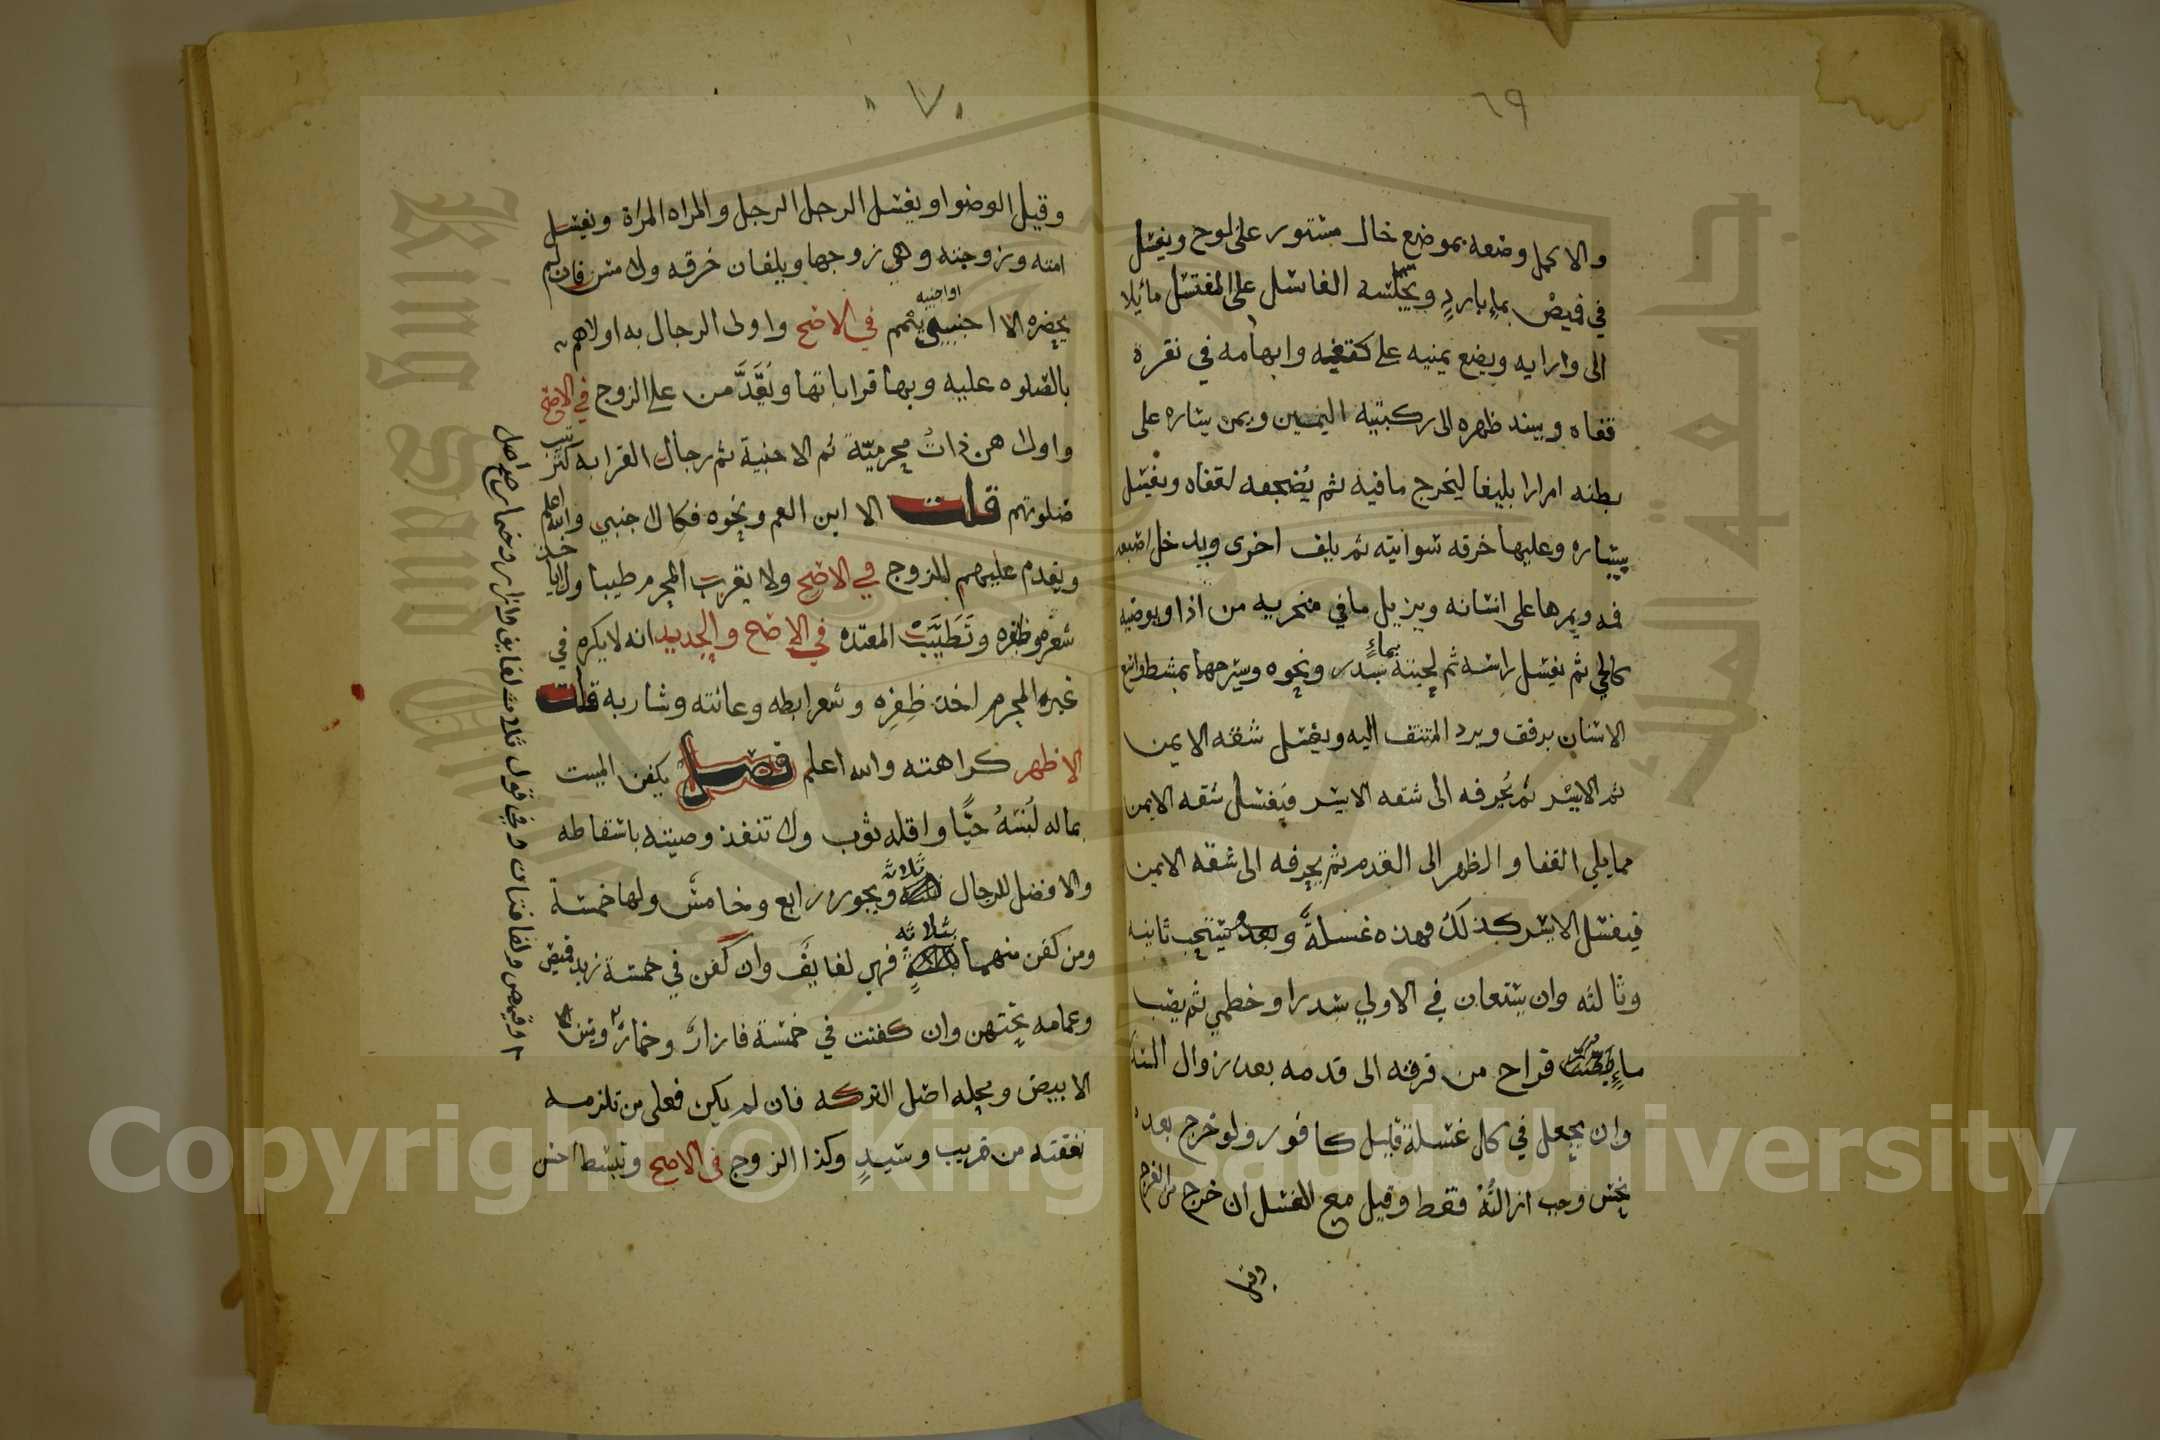 ٦٩
والاكمل وضعه بموضع خال مستور على لوح ويغسل
في قميص بماء بارد ويجلسه الغاسل على المغتسل مائلا
الى ورايه ويضع يمينه على كتفيه وابهامه في نقرة
قفاه ويسند ظهره الى ركبتيه اليمين ويمر يساره على
بطنه امرارا بليغا ليخرج ما فيه ثم يضجعه لقفاه ويغسل
بيساره وعليها خرقه سواتيه ثم يلف اخرى ويدخل اصبعه
فمه ويمرها على اسنانه ويزيل ما في منخريه من اذا ويوضيه
كالحي ثم يغسل راسه ثم لحيته بماء سدر ونحوه ويسرحها بمشط واسع
الاسنان برفق ويرد المنتتف اليه ويغسل شقه الايمن
ثم الايسر ثم يحرفه الى شقه الايسر فيغسل شقه الايمن
مما يلي القفا والظهر الى القدم ثم يحرفه الى شقه الايمن
فيغسل الايسر كذلك فهذه غسلة وبعده يستحب ثانيه
وثالثه وان يستعان في الاولي بسدر او خطمي ثم يصب
ماء قراح من قرقه الى قدمه بعد زوال السدر
وان يجعل في كل غسلة قليل كافور ولو خرج بعده
نجس وجب ازالته فقط وقيل مع الغسل ان خرج من الفرج
وقيل
٧٠
وقيل الوضوا ويغسل الرجل الرجل والمراه المراة ويغسل
امته وزوجته وهي زوجها ويلفان خرقه ولا مس فان لم
يحضره الا اجنبي او اجنبيه يمم في الاصح واولى الرجال به اولاهم
بالصلوه عليه وبها قراباتها ويقدمن على الزوج في الاصح
واولاهن ذات محرميّة ثم الاجنبية ثم رجال القرابه كترتيب
صلوتهم قلت الا ابن العم ونحوه فكالاجنبي والله اعلم
ويقدم عليهم الزوج في الاصح ولا يقرب المحرم طيبا ولا ياخذ
شعره وظفره وتطيّب المعتده في الاصح والجديد انه لا يكره في
غير المحرم اخذ ظفره وشعر ابطه وعانته وشاربه قلت
الاظهر كراهته والله اعلم فصل يكفن الميت
بماله لبسه حيّا واقله ثوب ولا تنفذ وصيته باسقاطه
والافضل للرجال ثلاثه ويجوز رابع وخامس ولها خمسة
ومن كفن منهما بثلاثه فهي لفايف وان كفن في خمسة زيد قميص
وعمامه تحتهن وان كفنت في خمسة فازار وخمار
الابيض ومحله اصل التركه فان لم يكن فعلى من تلزمه
نفقته من قريب وسيد وكذا الزوج في الاصح وتبسط احسن
او قميص ولفافتان وفي قول ثلاث لفايف وازار وخمار صح اصل
King Saud University
جامعة الملك سعود
Copyright © King Saud University